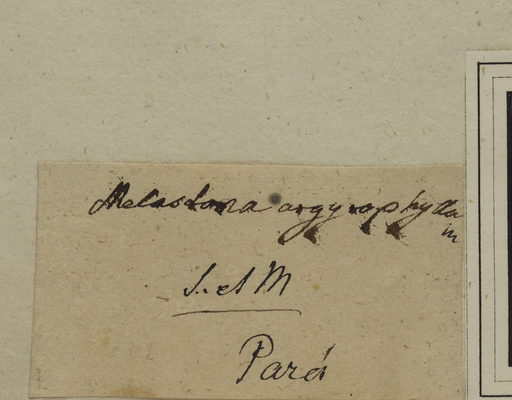 Melastoma argyrophylla
m
S. et M
Pará